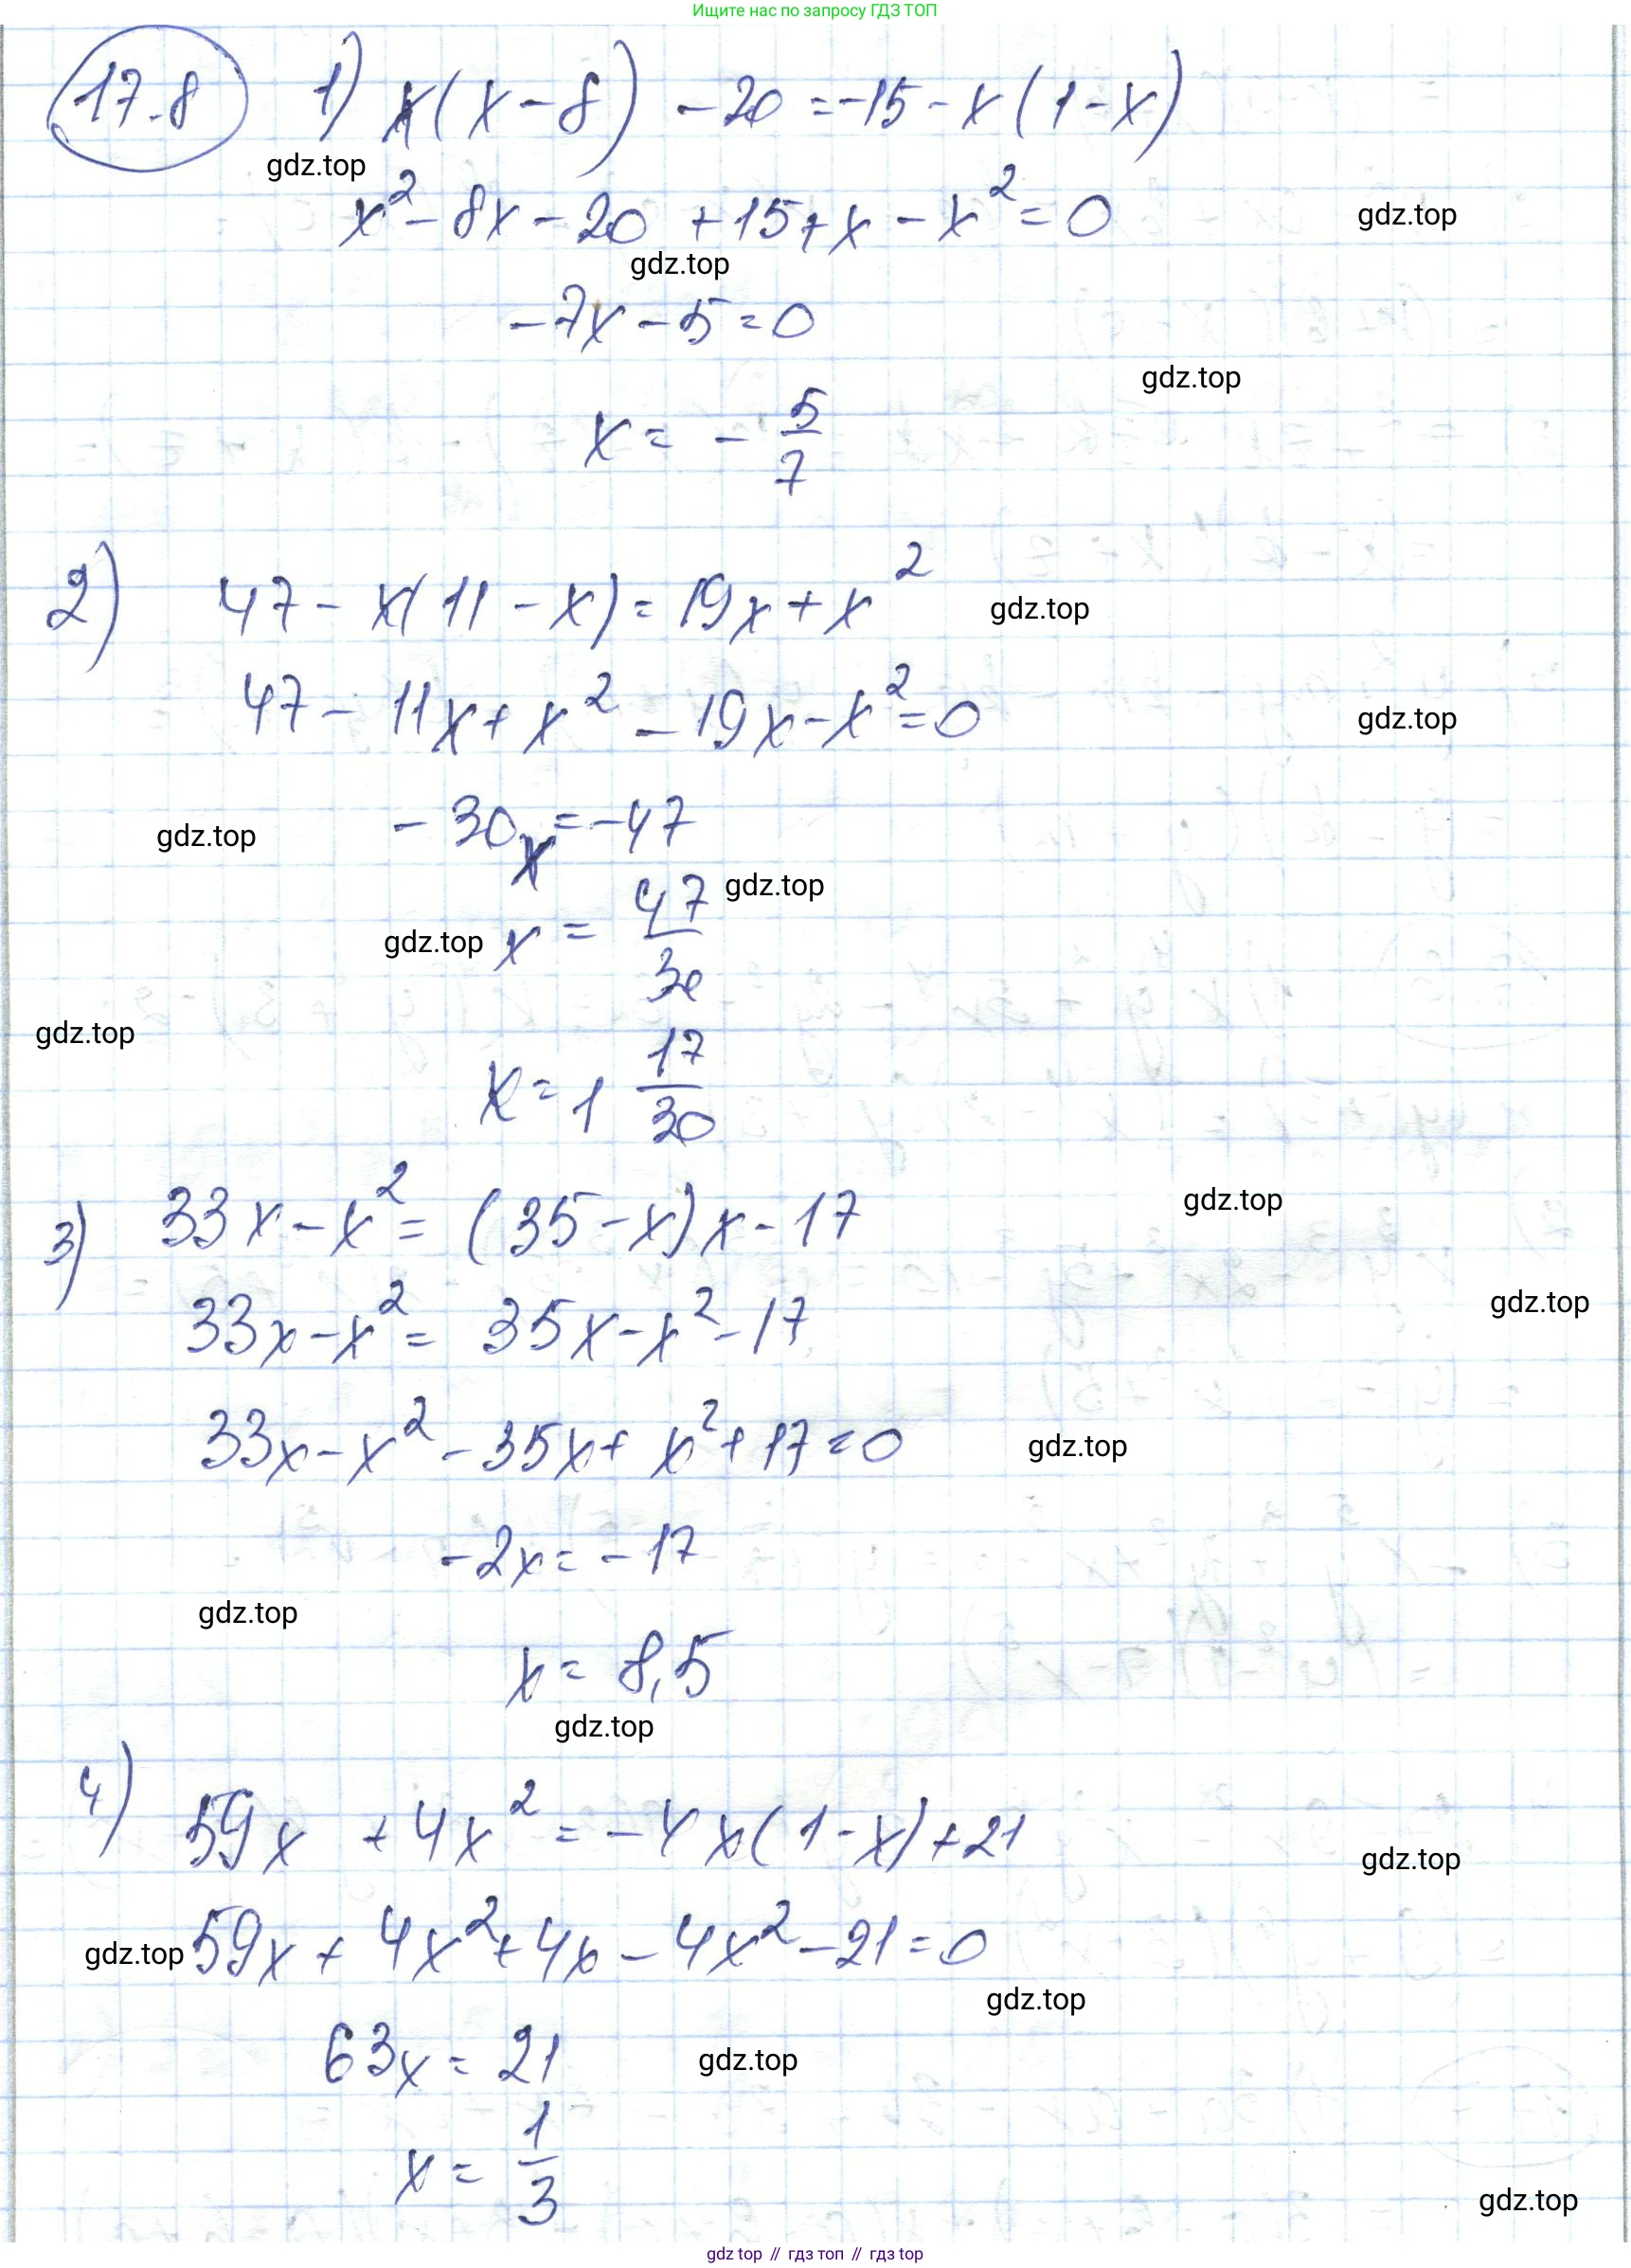 Ищите нас по запросу ГДЗ ТОП
17.8 1) x(x-8) -20 =-15-x(1-x)
gdz.top
x²-8x-20 +15+x-x²=0 gdz.top
gdz.top
-7x-5=0
gdz.top
x = -5/7
2) 47-x(11-x)=19x+x² gdz.top
47-11x+x²-19x-x²=0 gdz.top
-30x=-47
gdz.top
gdz.top
gdz.top x = 47/30
gdz.top
x=1 17/30
3) 33x-x²=(35-x)x-17 gdz.top
33x-x²= 35x-x²-17 gdz.top
33x-x²-35x+x²+17=0 gdz.top
-2x=-17
gdz.top
x=8,5
gdz.top
4) 59x +4x²=-4x(1-x)+21 gdz.top
gdz.top 59x+4x²+4x-4x²-21=0
gdz.top
63x=21 gdz.top
x=1/3
gdz.top
gdz top // гдз топ // гдз top